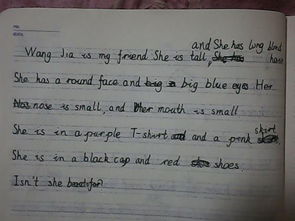 and She has long blond
Wang Jia is my friend She is tall She has hair
She has a round face and big a big blue eyes Her
nose is small, and Her mouth is small
She is in a purple T-shirt and and a pink skirt
She is in a black cap and red shoes.
Isn't she